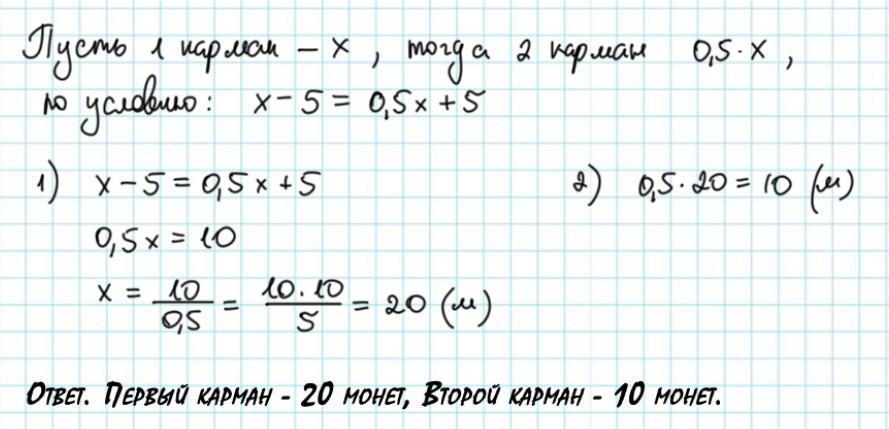 Пусть 1 карман – x, тогда 2 карман 0,5·x,
по условию: x – 5 = 0,5x + 5
1) x – 5 = 0,5x + 5
0,5x = 10
x = 10/0,5 = 10·10/5 = 20 (м)
2) 0,5·20 = 10 (м)
Ответ. Первый карман - 20 монет, Второй карман - 10 монет.